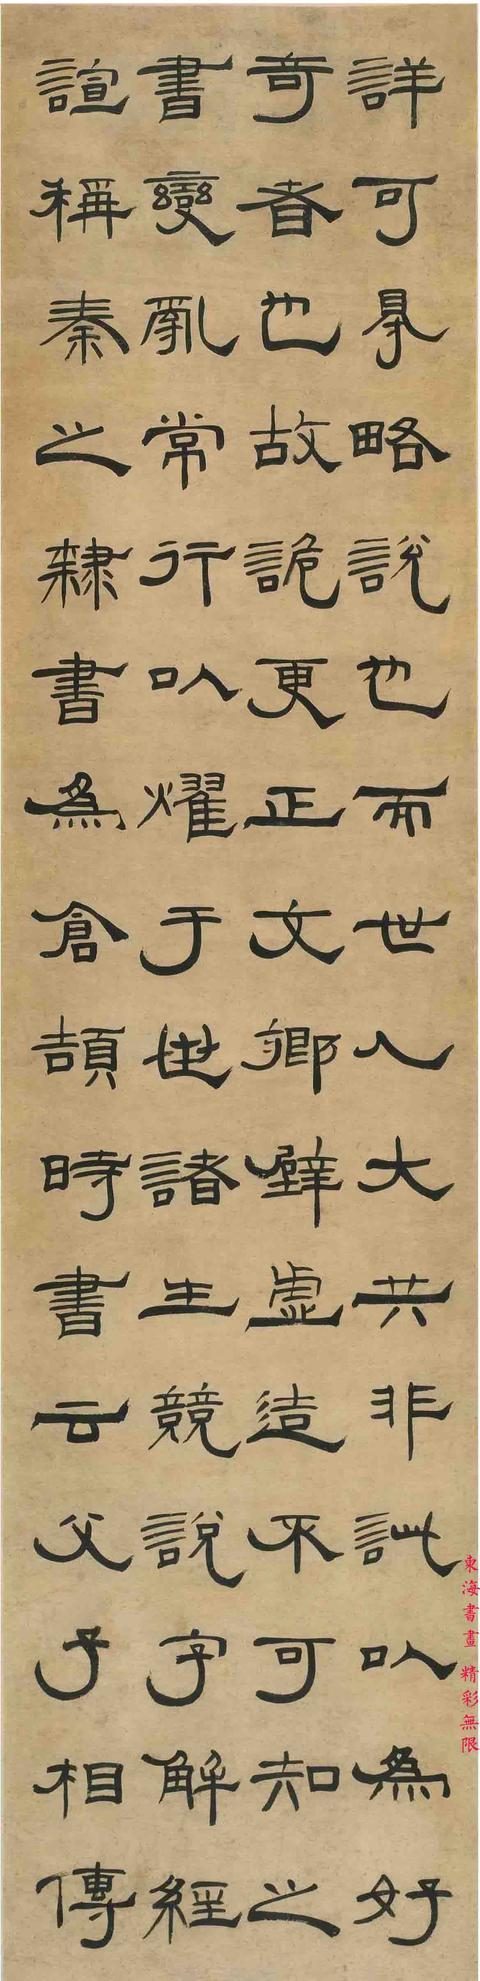 詳可㝵略說也而世人大共非訿以為好
奇者也故詭更正文鄉壁虛造不可知之
書變亂常行以燿于世諸生競說字解經
誼稱秦之隸書為倉頡時書云父子相傳
東海書畫 精彩無限